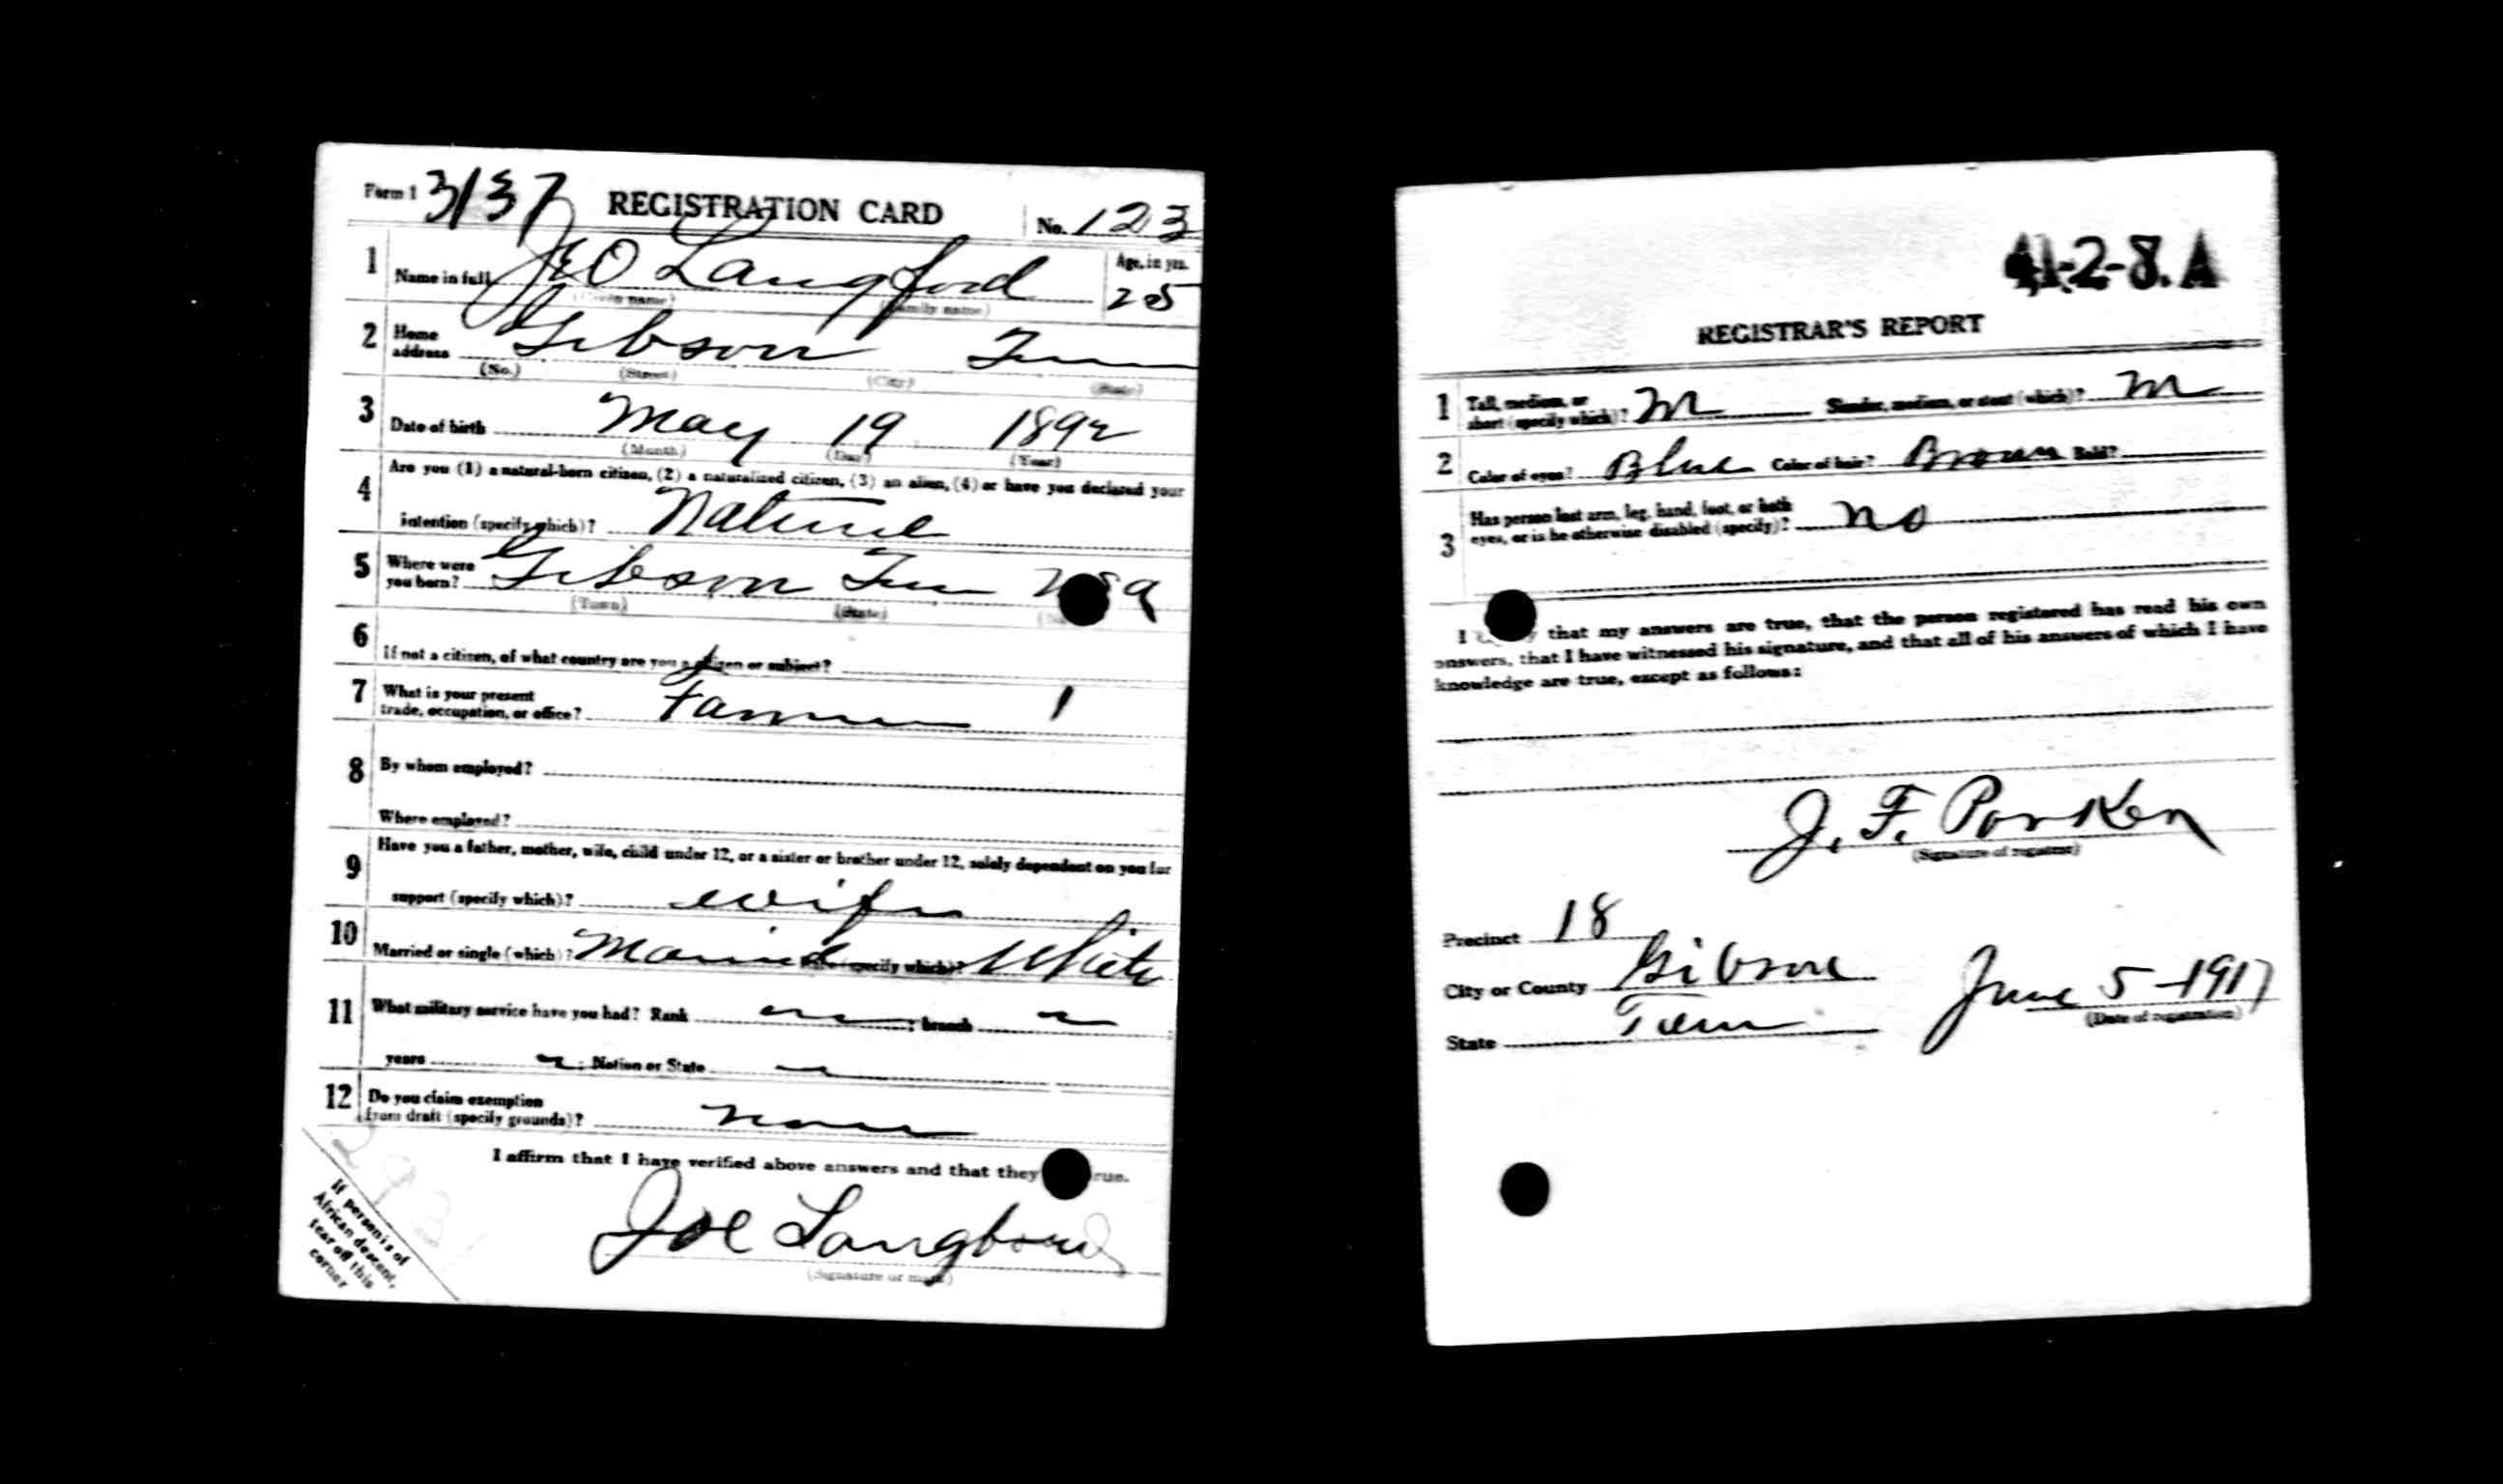 Form 1 3137 REGISTRATION CARD No. 123
1 Name in full Langford Age, in yrs.
(Given name) (Family name) 25
2 Home address Gibson Tenn
(No.) (Street) (City) (State)
3 Date of birth May 19 1892
(Month) (Day) (Year)
4 Are you (1) a natural-born citizen, (2) a naturalized citizen, (3) an alien, (4) or have you declared your
intention (specify which)? Natural
5 Where were you born? Gibson Tenn USA
(Town) (State)
6 If not a citizen, of what country are you a citizen or subject?
7 What is your present
trade, occupation, or office? Farmer 1
8 By whom employed?
Where employed?
9 Have you a father, mother, wife, child under 12, or a sister or brother under 12, solely dependent on you for
support (specify which)? wife
10 Married or single (which)? Married Race (specify which)? White
11 What military service have you had? Rank ; branch
years ; Nation or State
12 Do you claim exemption
from draft (specify grounds)? none
I affirm that I have verified above answers and that they rue.
Joe Langford
(Signature or mark)
If person is of
African descent,
tear off this
corner
41-2-8. A
REGISTRAR'S REPORT
1 Tall, medium, or
short (specify which)? M Slender, medium, or stout (which)? M
2 Color of eyes? Blue Color of hair? Brown Bald?
3 Has person lost arm, leg, hand, foot, or both
eyes, or is he otherwise disabled (specify)? no
I that my answers are true, that the person registered has read his own
answers, that I have witnessed his signature, and that all of his answers of which I have
knowledge are true, except as follows:
J. F. Parker
(Signature of registrar)
Precinct 18
City or County Gibson June 5-1917
State Tenn (Date of registration)